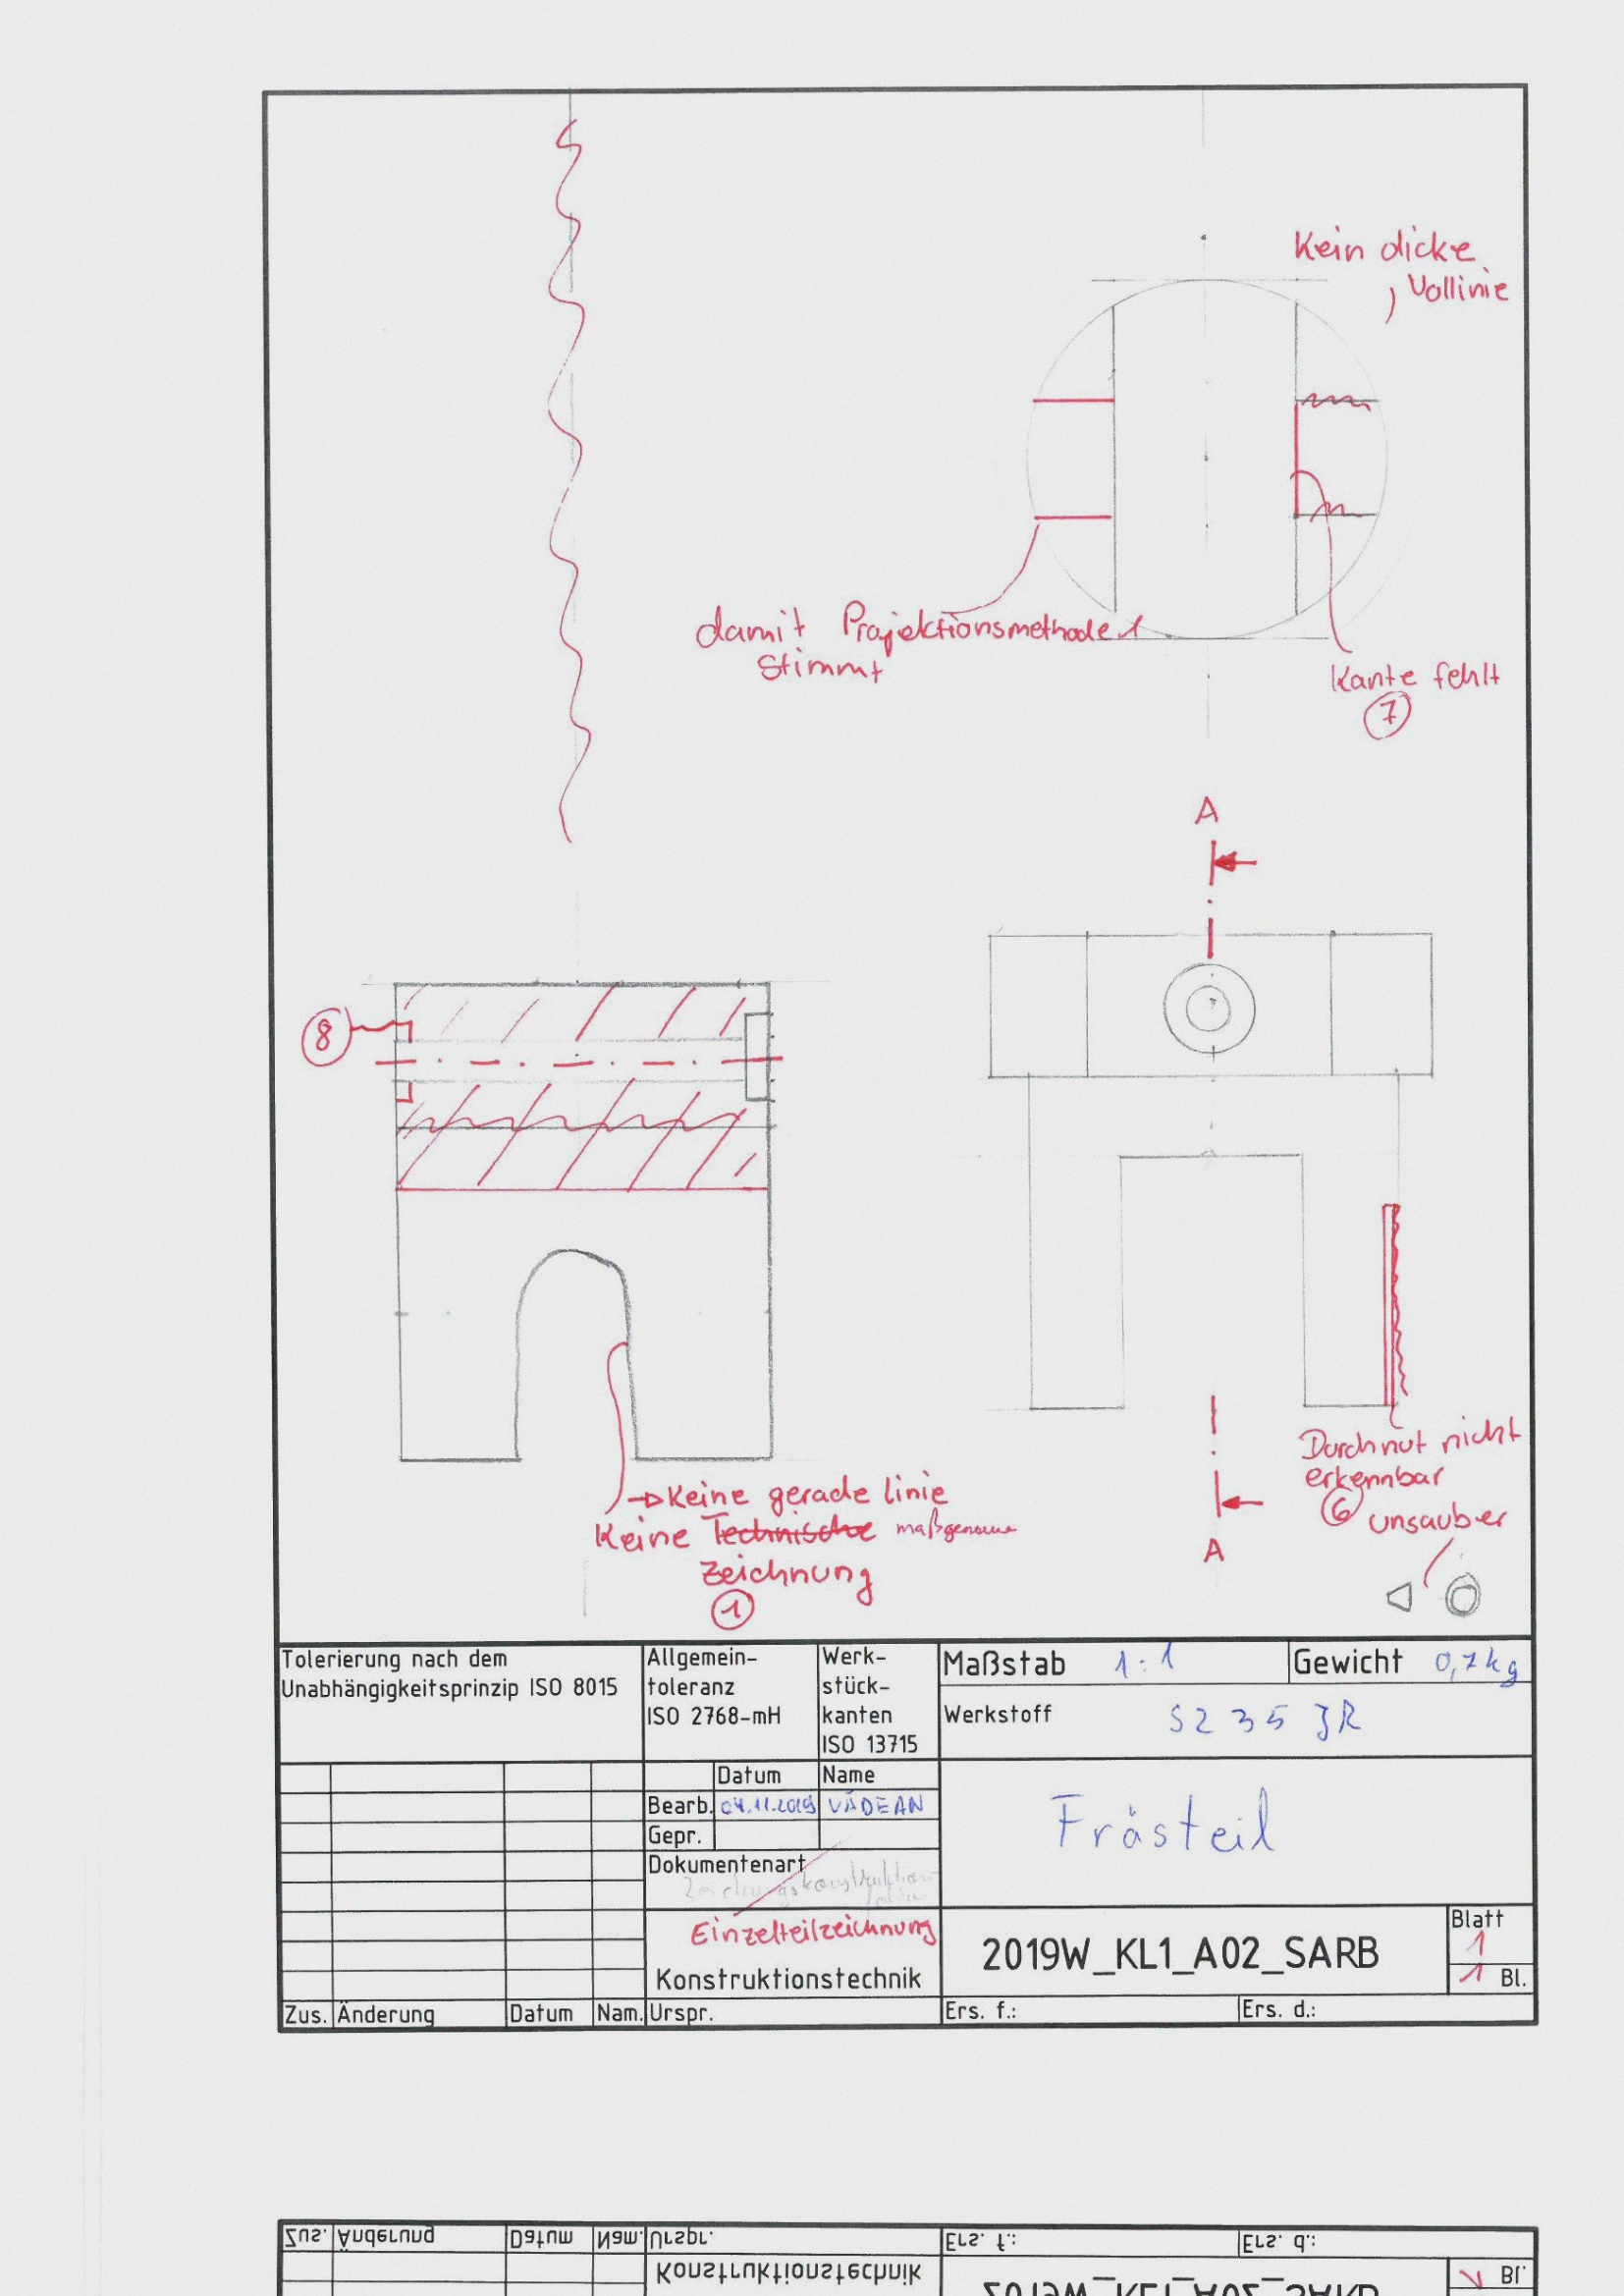 Kein dicke
Vollinie
damit Projektionsmethode 1
Stimmt
Kante fehlt
7
A
8
→ Keine gerade linie
Keine Technische maßgenaue
Zeichnung
1
Durchnut nicht
erkennbar
6
unsauber
A
Tolerierung nach dem
Unabhängigkeitsprinzip ISO 8015
Allgemein-
toleranz
ISO 2768-mH
Werk-
stück-
kanten
ISO 13715
Maßstab 1:1
Gewicht 0,7kg
Werkstoff S235JR
Datum Name
Bearb. 04.11.2019 VĂDEAN
Gepr.
Dokumentenart
Einzelteilzeichnung
Konstruktionstechnik
Frästeil
2019W_KL1_A02_SARB
Blatt
1
1 Bl.
Zus. Änderung Datum Nam. Urspr. Ers. f.: Ers. d.:
Zus. Änderung Datum Nam. Urspr. Ers. f.: Ers. d.:
Konstruktionstechnik
1 Bl.
2019W_KL1_A02_SARB